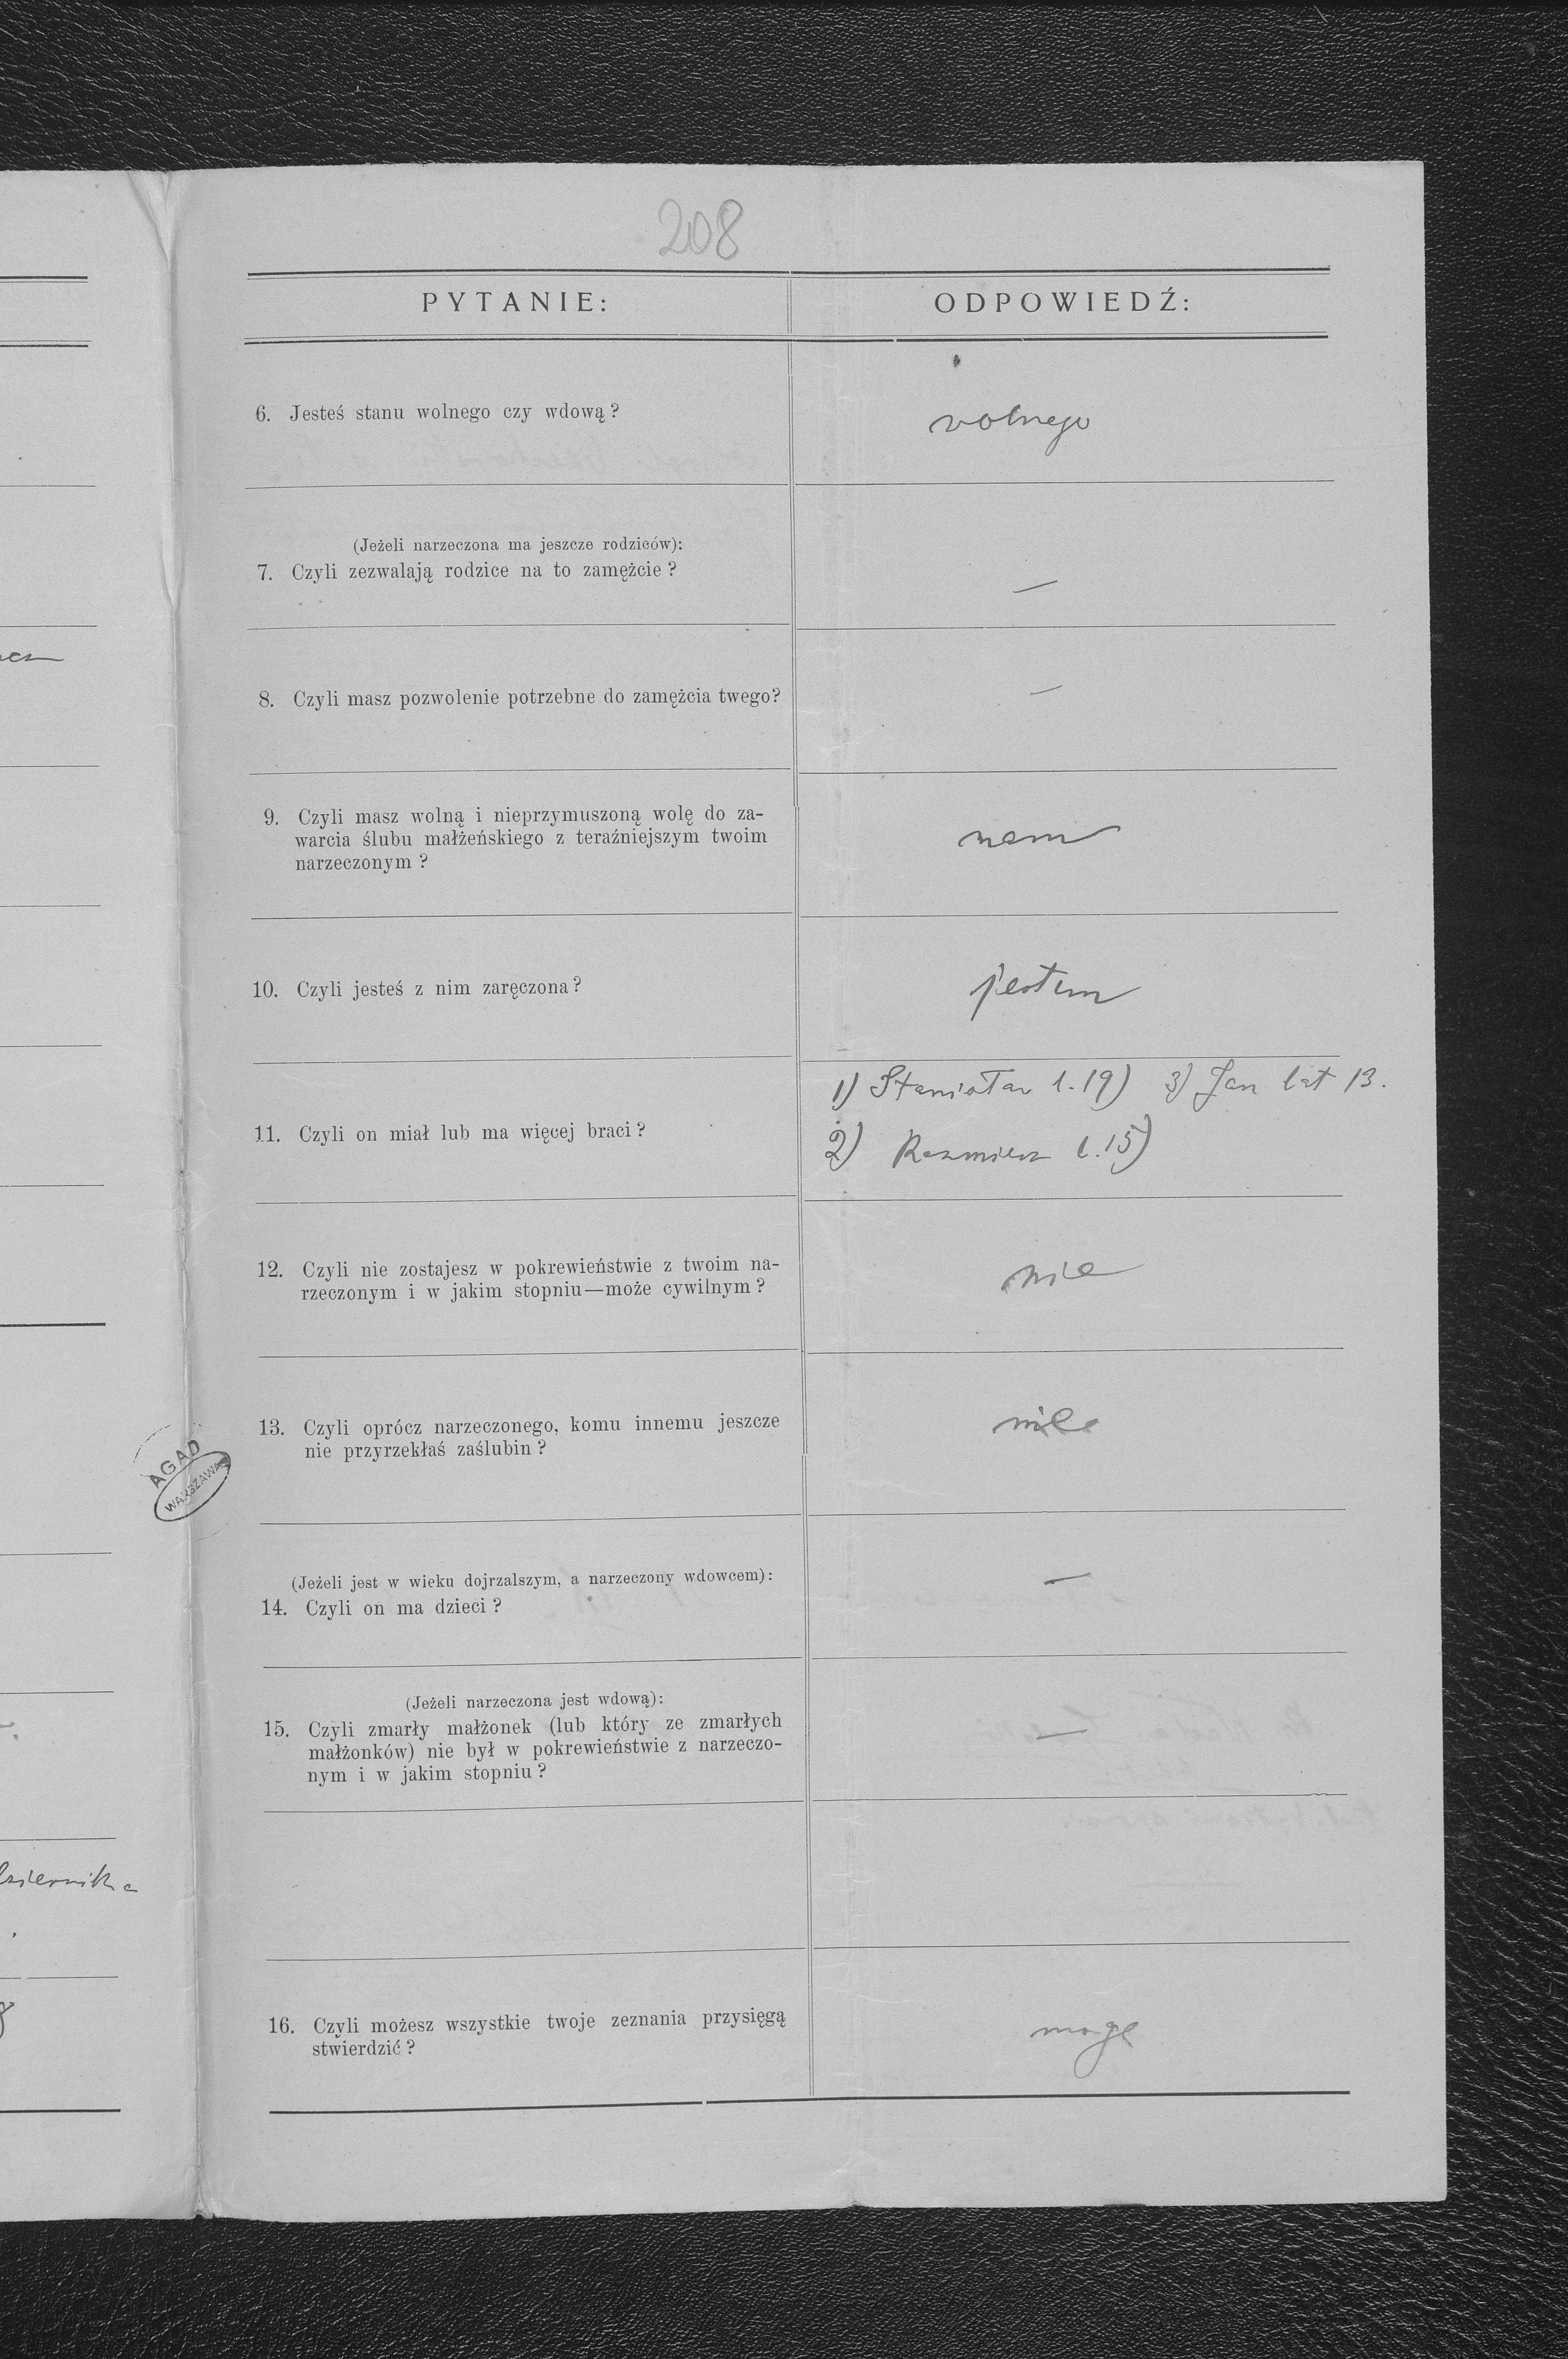 208
PYTANIE:
ODPOWIEDŹ:
6. Jesteś stanu wolnego czy wdową?
wolnego
(Jeżeli narzeczona ma jeszcze rodziców):
7. Czyli zezwalają rodzice na to zamężcie?
—
8. Czyli masz pozwolenie potrzebne do zamężcia twego?
—
9. Czyli masz wolną i nieprzymuszoną wolę do za-
warcia ślubu małżeńskiego z teraźniejszym twoim
narzeczonym?
mam
10. Czyli jesteś z nim zaręczona?
jestem
11. Czyli on miał lub ma więcej braci?
1) Stanisław l. 19) 3) Jan lat 13.
2) Kazmierz l. 15)
12. Czyli nie zostajesz w pokrewieństwie z twoim na-
rzeczonym i w jakim stopniu—może cywilnym?
nie
13. Czyli oprócz narzeczonego, komu innemu jeszcze
nie przyrzekłaś zaślubin?
nie
(Jeżeli jest w wieku dojrzalszym, a narzeczony wdowcem):
14. Czyli on ma dzieci?
—
(Jeżeli narzeczona jest wdową):
15. Czyli zmarły małżonek (lub który ze zmarłych
małżonków) nie był w pokrewieństwie z narzeczo-
nym i w jakim stopniu?
—
16. Czyli możesz wszystkie twoje zeznania przysięgą
stwierdzić?
mogę
AGAD
WARSZAWA